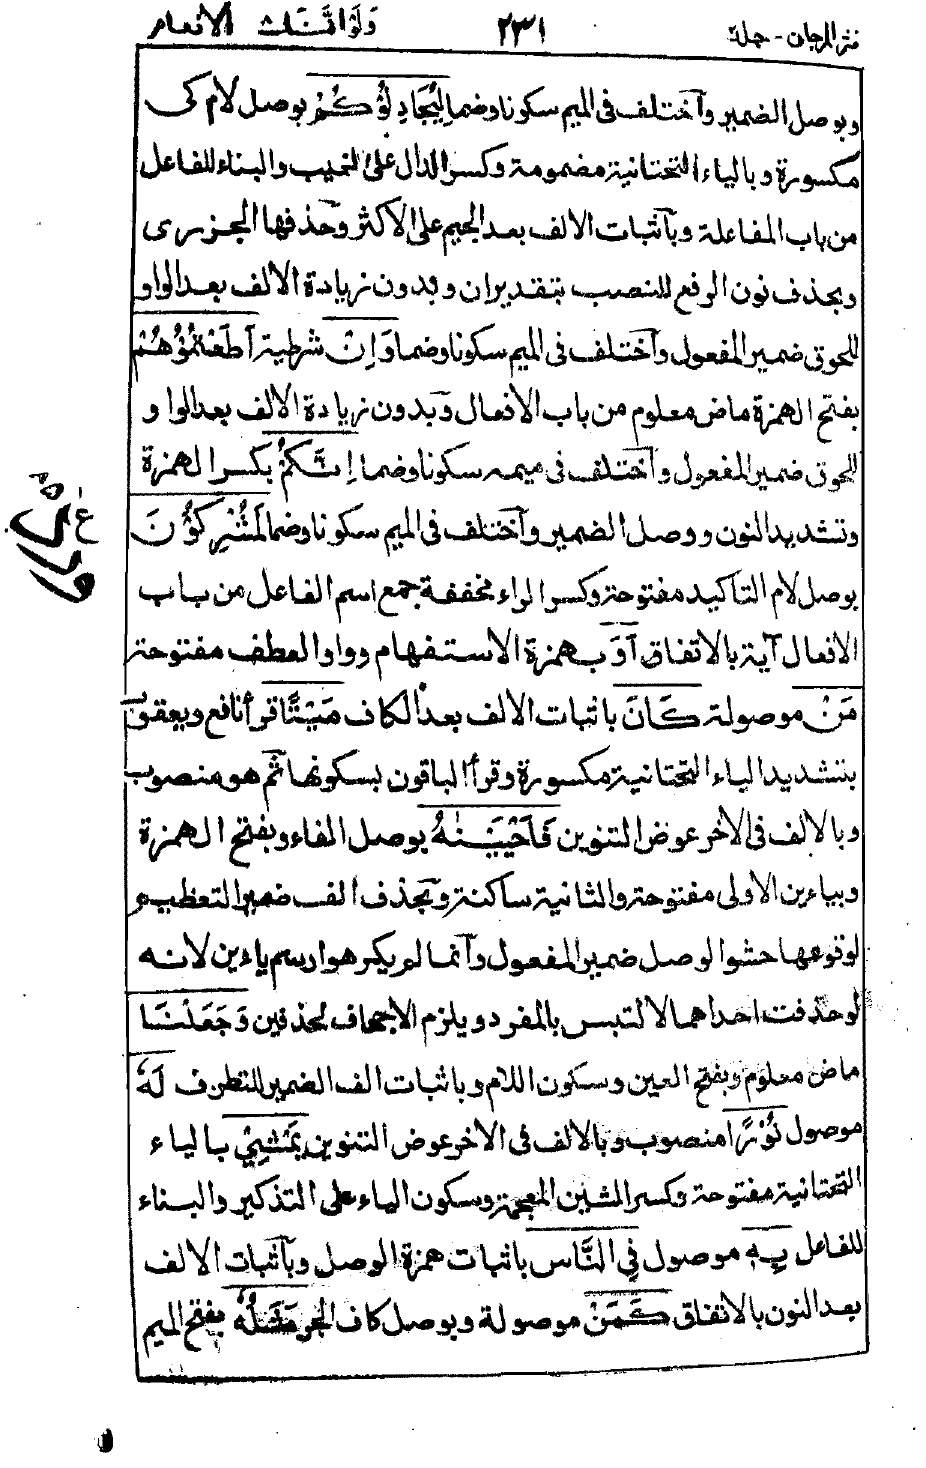 نثر المرجان - جلد ٢٣١ ولو اننا الانعام
وبوصل الضمير واختلف فى الميم سكونا وضما لِيُجَادِلُوْكُمْ بوصل لام كى
مكسورة وبالياء التحتانية مضمومة وكسر الدال على الغيب والبناء للفاعل
من باب المفاعلة وبآثبات الالف بعد الجيم على الاكثر وحذفها الجزرى
وبحذف نون الرفع للنصب بتقدير ان وبدون زيادة الالف بعد الواو
للحوق ضمير المفعول واختلف فى الميم سكونا وضما وَاِنْ شرطية اَطَعْتُمُوْهُمْ
بفتح الهمزة ماض معلوم من باب الافعال وبدون زيادة الالف بعد الواو
للحوق ضمير المفعول واختلف فى ميمه سكونا وضما اِنَّكُمْ بكسر الهمزة
وتشديد النون ووصل الضمير واختلف فى الميم سكونا وضما لَمُشْرِكُوْنَ
بوصل لام التاكيد مفتوحة وكسر الراء مخففة جمع اسم الفاعل من باب
الافعال آية بالاتفاق اَوَ بهمزة الاستفهام وواو العطف مفتوحة
مَنْ موصولة كَانَ باثبات الالف بعد الكاف مَيْتًا قرأ نافع ويعقوب
بتشديد الياء التحتانية مكسورة وقرأ الباقون بسكونها ثم هو منصوب
وبالالف فى الاخر عوض التنوين فَاَحْيَيْنٰهُ بوصل الفاء وبفتح الهمزة
وبياءين الاولى مفتوحة والثانية ساكنة وبحذف الف ضمير التعظيم
لوقوعها حشوا لوصل ضمير المفعول وآنما لم يكرهوا رسم ياءين لانه
لو حذفت احداهما لالتبس بالمفرد ويلزم الاجحاف لحذفين وَجَعَلْنَا
ماض معلوم وبفتح العين وسكون اللام وباثبات الف الضمير للتطرف لَهٗ
موصول نُوْرًا منصوب وبالالف فى الاخر عوض التنوين يَمْشِيْ بالياء
التحتانية مفتوحة وكسر الشين المعجمة وسكون الياء على التذكير والبناء
للفاعل بِهٖ موصول فِي النَّاسِ باثبات همزة الوصل وبآثبات الالف
بعد النون بالاتفاق كَمَنْ موصولة وبوصل كاف الجر مَثَلُهٗ بفتح الميم